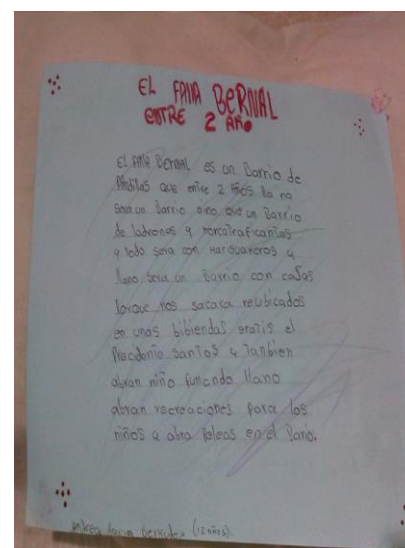 EL FAMA BERNAL
ENTRE 2 AÑO
EL FAMA BERNAL es un Barrio de
Pndillas que entre 2 años lla no
sera un Barrio sino que un Barrio
de ladrones y narcotraficantes
y todo sera con marguareros y
llano sera un Barrio con casas
Porque nos sacara reubicados
en unas bibiendas gratis el
Precidente santos y Tanbien
abran niño fumando llano
abran recreaciones para los
niños y abra Peleas en el Bario.
Andrea (12 años).